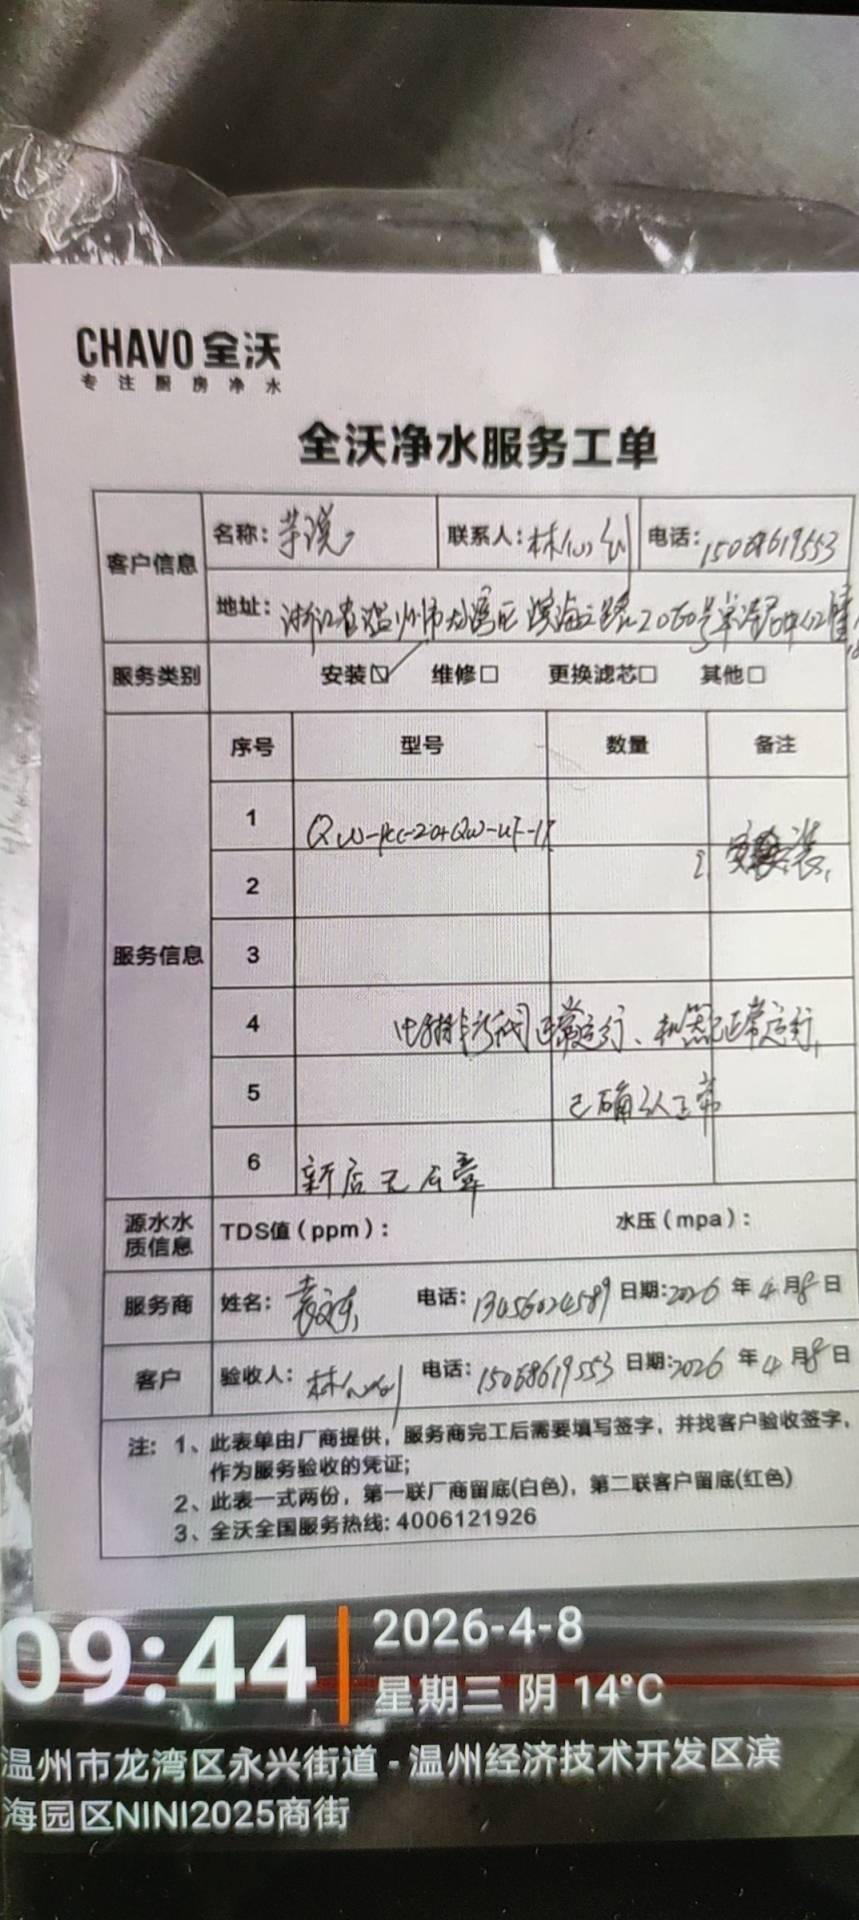 CHAVO 全沃
专注厨房净水
全沃净水服务工单
客户信息 名称: 联系人:林 电话:15068619553
地址: 浙江省温州市龙湾区滨海二路2060号
服务类别 安装☑ 维修□ 更换滤芯□ 其他□
服务信息 序号 型号 数量 备注
1 QW-pcc-20+QW-UF-1T
2 安装
3
4 电动排污阀正常运行、机器已正常运行,
5 已确认正常
6 新店无公章
源水水质信息 TDS值(ppm): 水压(mpa):
服务商 姓名:袁 电话:13456024589 日期:2026 年 4 月 8 日
客户 验收人:林 电话:15068619553 日期:2026 年 4 月 8 日
注: 1、此表单由厂商提供,服务商完工后需要填写签字,并找客户验收签字,
作为服务验收的凭证;
2、此表一式两份,第一联厂商留底(白色),第二联客户留底(红色)
3、全沃全国服务热线: 4006121926
09:44
2026-4-8
星期三 阴 14°C
温州市龙湾区永兴街道 - 温州经济技术开发区滨
海园区NINI2025商街